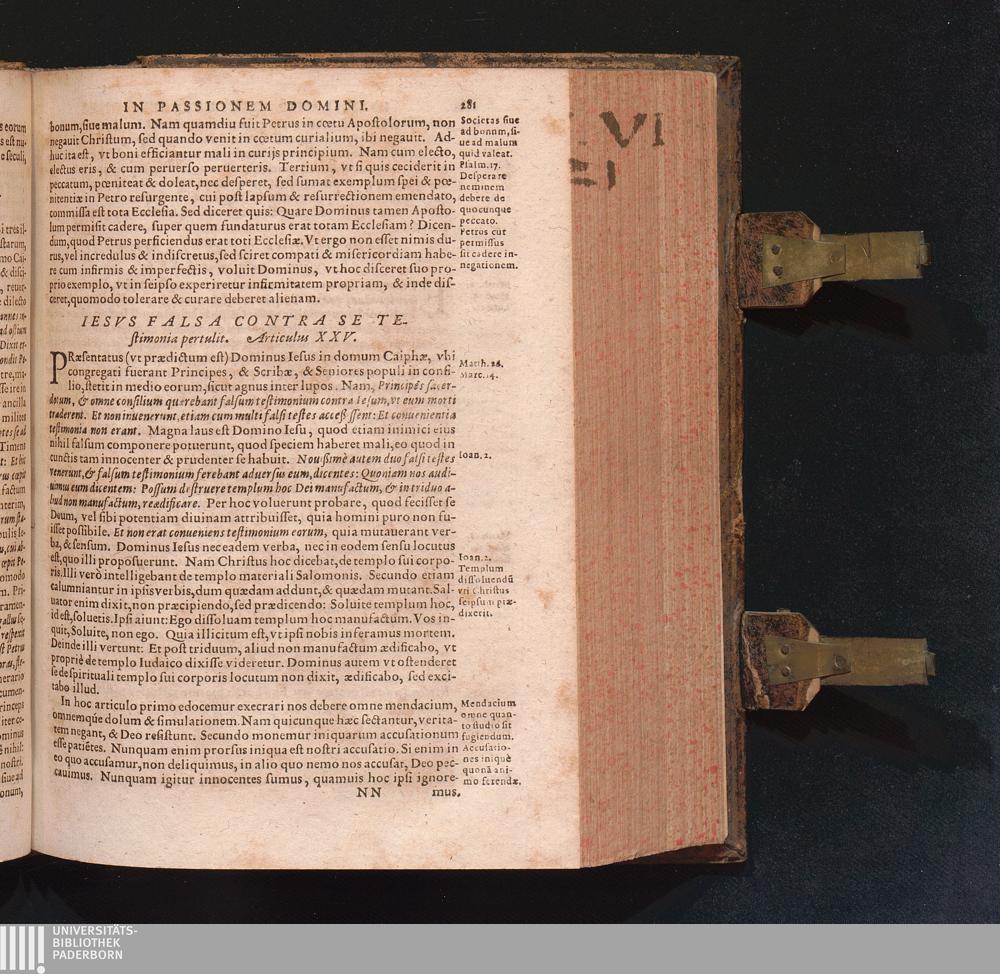 IN PASSIONEM DOMINI.
281
bonum, siue malum. Nam quamdiu fuit Petrus in cœtu Apostolorum, non
negauit Christum, sed quando venit in cœtum curialium, ibi negauit. Ad-
huc ita est, vt boni efficiantur mali in curijs principium. Nam cum electo,
electus eris, & cum peruerso peruerteris. Tertium, vt si quis ceciderit in
peccatum, pœniteat & doleat, nec desperet, sed sumat exemplum spei & pœ-
nitentiæ in Petro resurgente, cui post lapsum & resurrectionem emendato,
commissa est tota Ecclesia. Sed diceret quis: Quare Dominus tamen Aposto-
lum permisit cadere, super quem fundaturus erat totam Ecclesiam? Dicen-
dum, quod Petrus perficiendus erat toti Ecclesiæ. Vt ergo non esset nimis du-
rus, vel incredulus & indiscretus, sed sciret compati & misericordiam habe-
re cum infirmis & imperfectis, voluit Dominus, vt hoc disceret suo pro-
prio exemplo, vt in seipso experiretur infirmitatem propriam, & inde dis-
ceret, quomodo tolerare & curare deberet alienam.
Societas siue
ad bonum, si-
ue ad malum
quid valeat.
Psalm. 17.
Desperare
neminem
debere de
quocunque
peccato.
Petrus cur
permissus
sit cadere in
negationem.
IESVS FALSA CONTRA SE TE-
stimonia pertulit. Articulus XXV.
PRæsentatus (vt prædictum est) Dominus Iesus in domum Caiphæ, vbi
congregati fuerant Principes, & Scribæ, & Seniores populi in consi-
lio, stetit in medio eorum, sicut agnus inter lupos. Nam, Principes sacer-
dotum, & omne consilium quærebant falsum testimonium contra Iesum, vt eum morti
traderent. Et non inuenerunt, etiam cum multi falsi testes access ssent: Et conuenientia
testimonia non erant. Magna laus est Domino Iesu, quod etiam inimici eius
nihil falsum componere potuerunt, quod speciem haberet mali, eo quod in
cunctis tam innocenter & prudenter se habuit. Nouissimè autem duo falsi testes
venerunt, & falsum testimonium ferebant aduersus eum, dicentes: Quoniam nos audi-
uimus eum dicentem: Possum destruere templum hoc Dei manufactum, & in triduo a-
liud non manufactum, reædificare. Per hoc voluerunt probare, quod fecisset se
Deum, vel sibi potentiam diuinam attribuisset, quia homini puro non fu-
isset possibile. Et non erat conueniens testimonium eorum, quia mutauerant ver-
ba, & sensum. Dominus Iesus nec eadem verba, nec in eodem sensu locutus
est, quo illi proposuerunt. Nam Christus hoc dicebat, de templo sui corpo-
ris. Illi verò intelligebant de templo materiali Salomonis. Secundo etiam
calumniantur in ipsis verbis, dum quædam addunt, & quædam mutant. Sal-
uator enim dixit, non præcipiendo, sed prædicendo: Soluite templum hoc,
id est, soluetis. Ipsi aiunt: Ego dissoluam templum hoc manufactum. Vos in-
quit, Soluite, non ego. Quia illicitum est, vt ipsi nobis inferamus mortem.
Deinde illi vertunt: Et post triduum, aliud non manufactum ædificabo, vt
propriè de templo Iudaico dixisse videretur. Dominus autem vt ostenderet
se de spirituali templo sui corporis locutum non dixit, ædificabo, sed exci-
tabo illud.
Matth. 26.
Marc. 14.
Ioan. 2.
Ioan. 2.
Templum
dissoluendū
vti Christus
seipsum præ-
dixerit.
In hoc articulo primo edocemur execrari nos debere omne mendacium,
omnemque dolum & simulationem. Nam quicunque hæc sectantur, verita-
tem negant, & Deo resistunt. Secundo monemur iniquarum accusationum
esse patiētes. Nunquam enim prorsus iniqua est nostri accusatio. Si enim in
eo quo accusamur, non deliquimus, in alio quo nemo nos accusat, Deo pec-
cauimus. Nunquam igitur innocentes sumus, quamuis hoc ipsi ignore-
Mendacium
omne quan-
to studio sit
fugiendum.
Accusatio-
nes iniquè
quonā ani-
mo ferendæ.
NN mus.
VI
UNIVERSITÄTS-
BIBLIOTHEK
PADERBORN